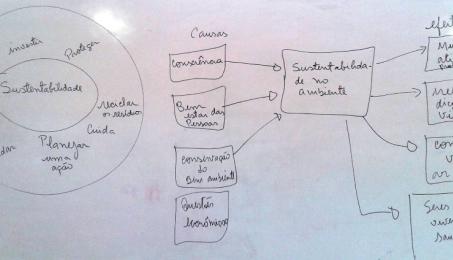 investir
Proteger
Sustentabilidade
reciclar
os resíduos
Cuida
dar
Planejar
uma
ação
Causas
Consciência
Bem
estar das
Pessoas
conservação
do
Bem ambiente
Questões
Econômicas
Sustentabilida-
de no
ambiente
efeit
Me
di
vi
con
v
ar
Seres
vive
sau